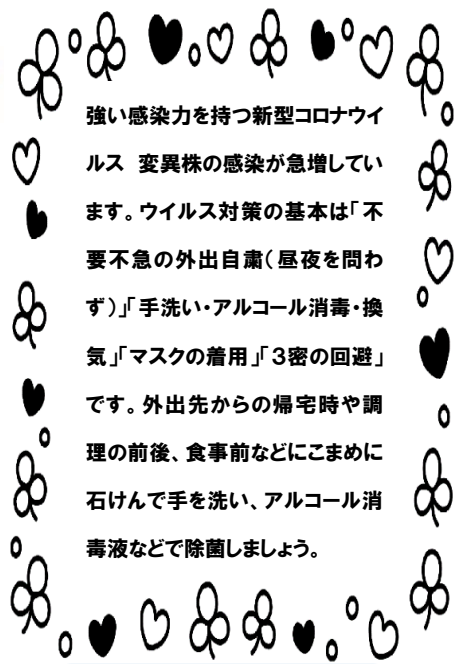 強い感染力を持つ新型コロナウイ
ルス　変異株の感染が急増してい
ます。ウイルス対策の基本は「不
要不急の外出自粛（昼夜を問わ
ず）」「手洗い・アルコール消毒・換
気」「マスクの着用」「３密の回避」
です。外出先からの帰宅時や調
理の前後、食事前などにこまめに
石けんで手を洗い、アルコール消
毒液などで除菌しましょう。